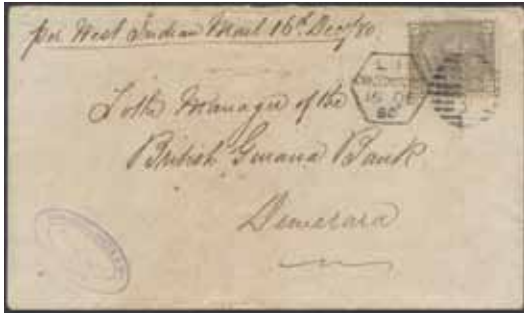 per West Indian Mail 16th Decr/80.
L I
16 DE
80
To the Manager of the
British Guiana Bank
Demerara